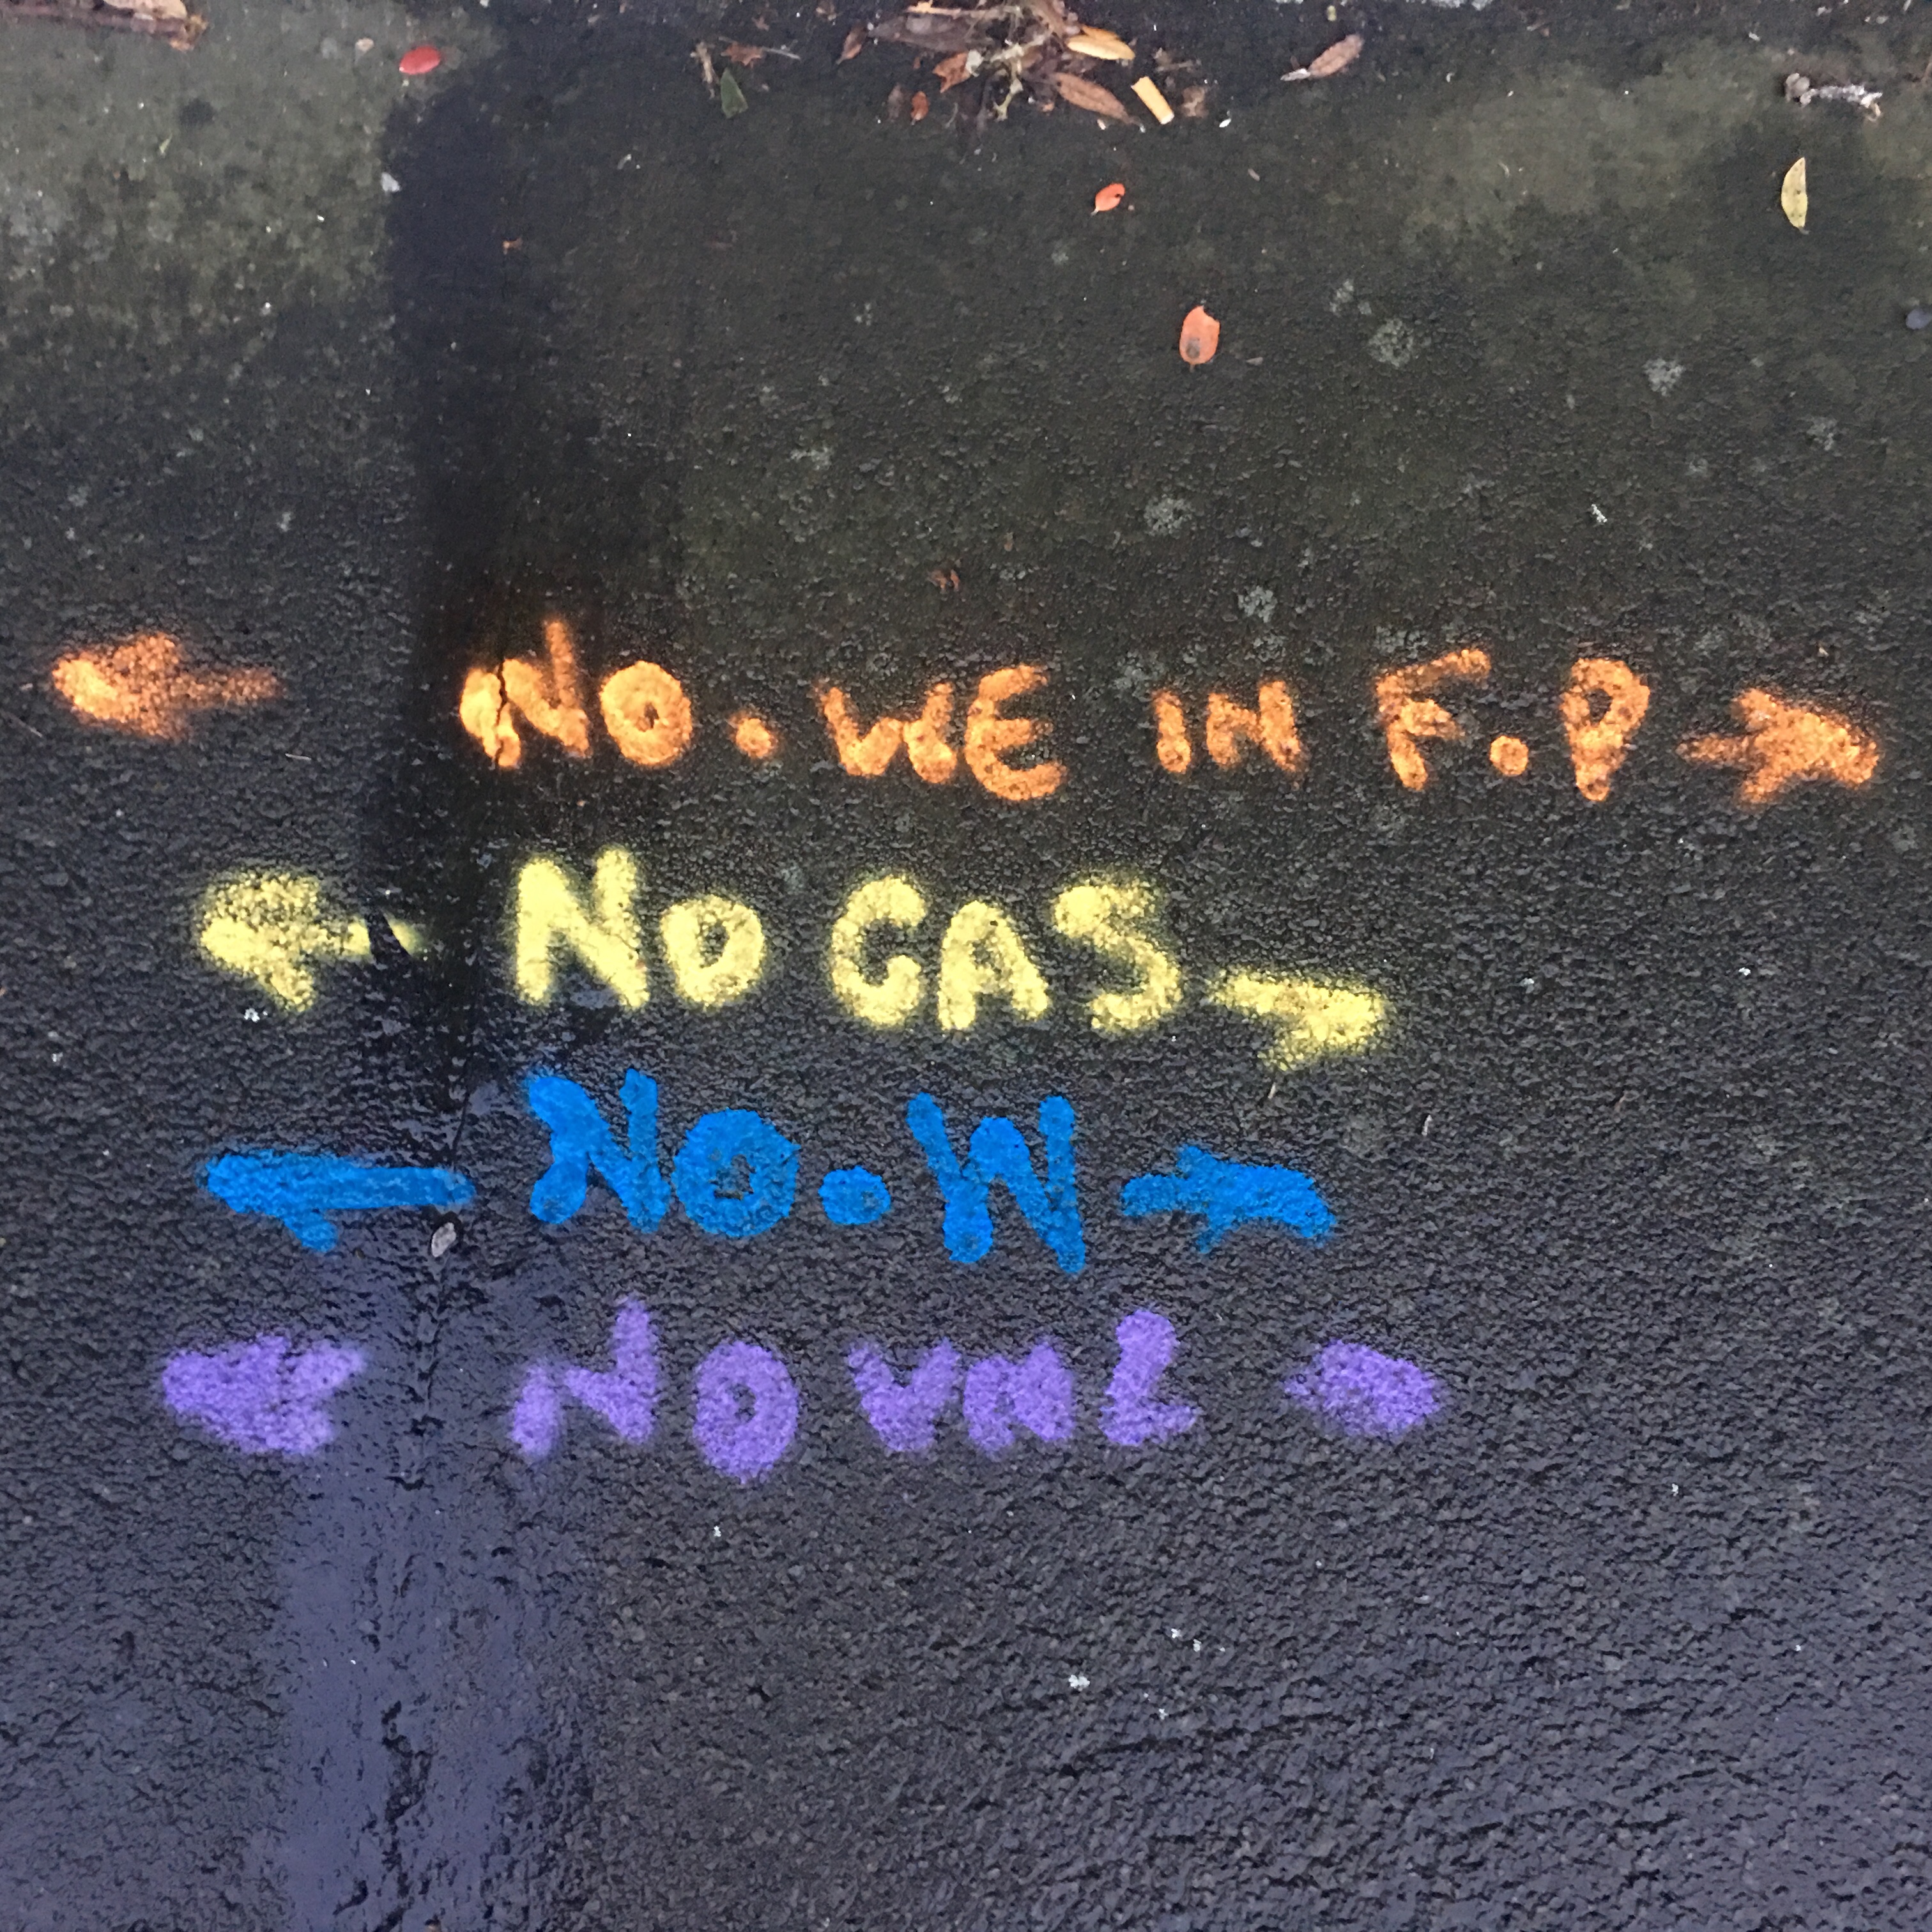 ← NO. WE IN F.P →
← NO GAS →
← NO. W →
NO VAL